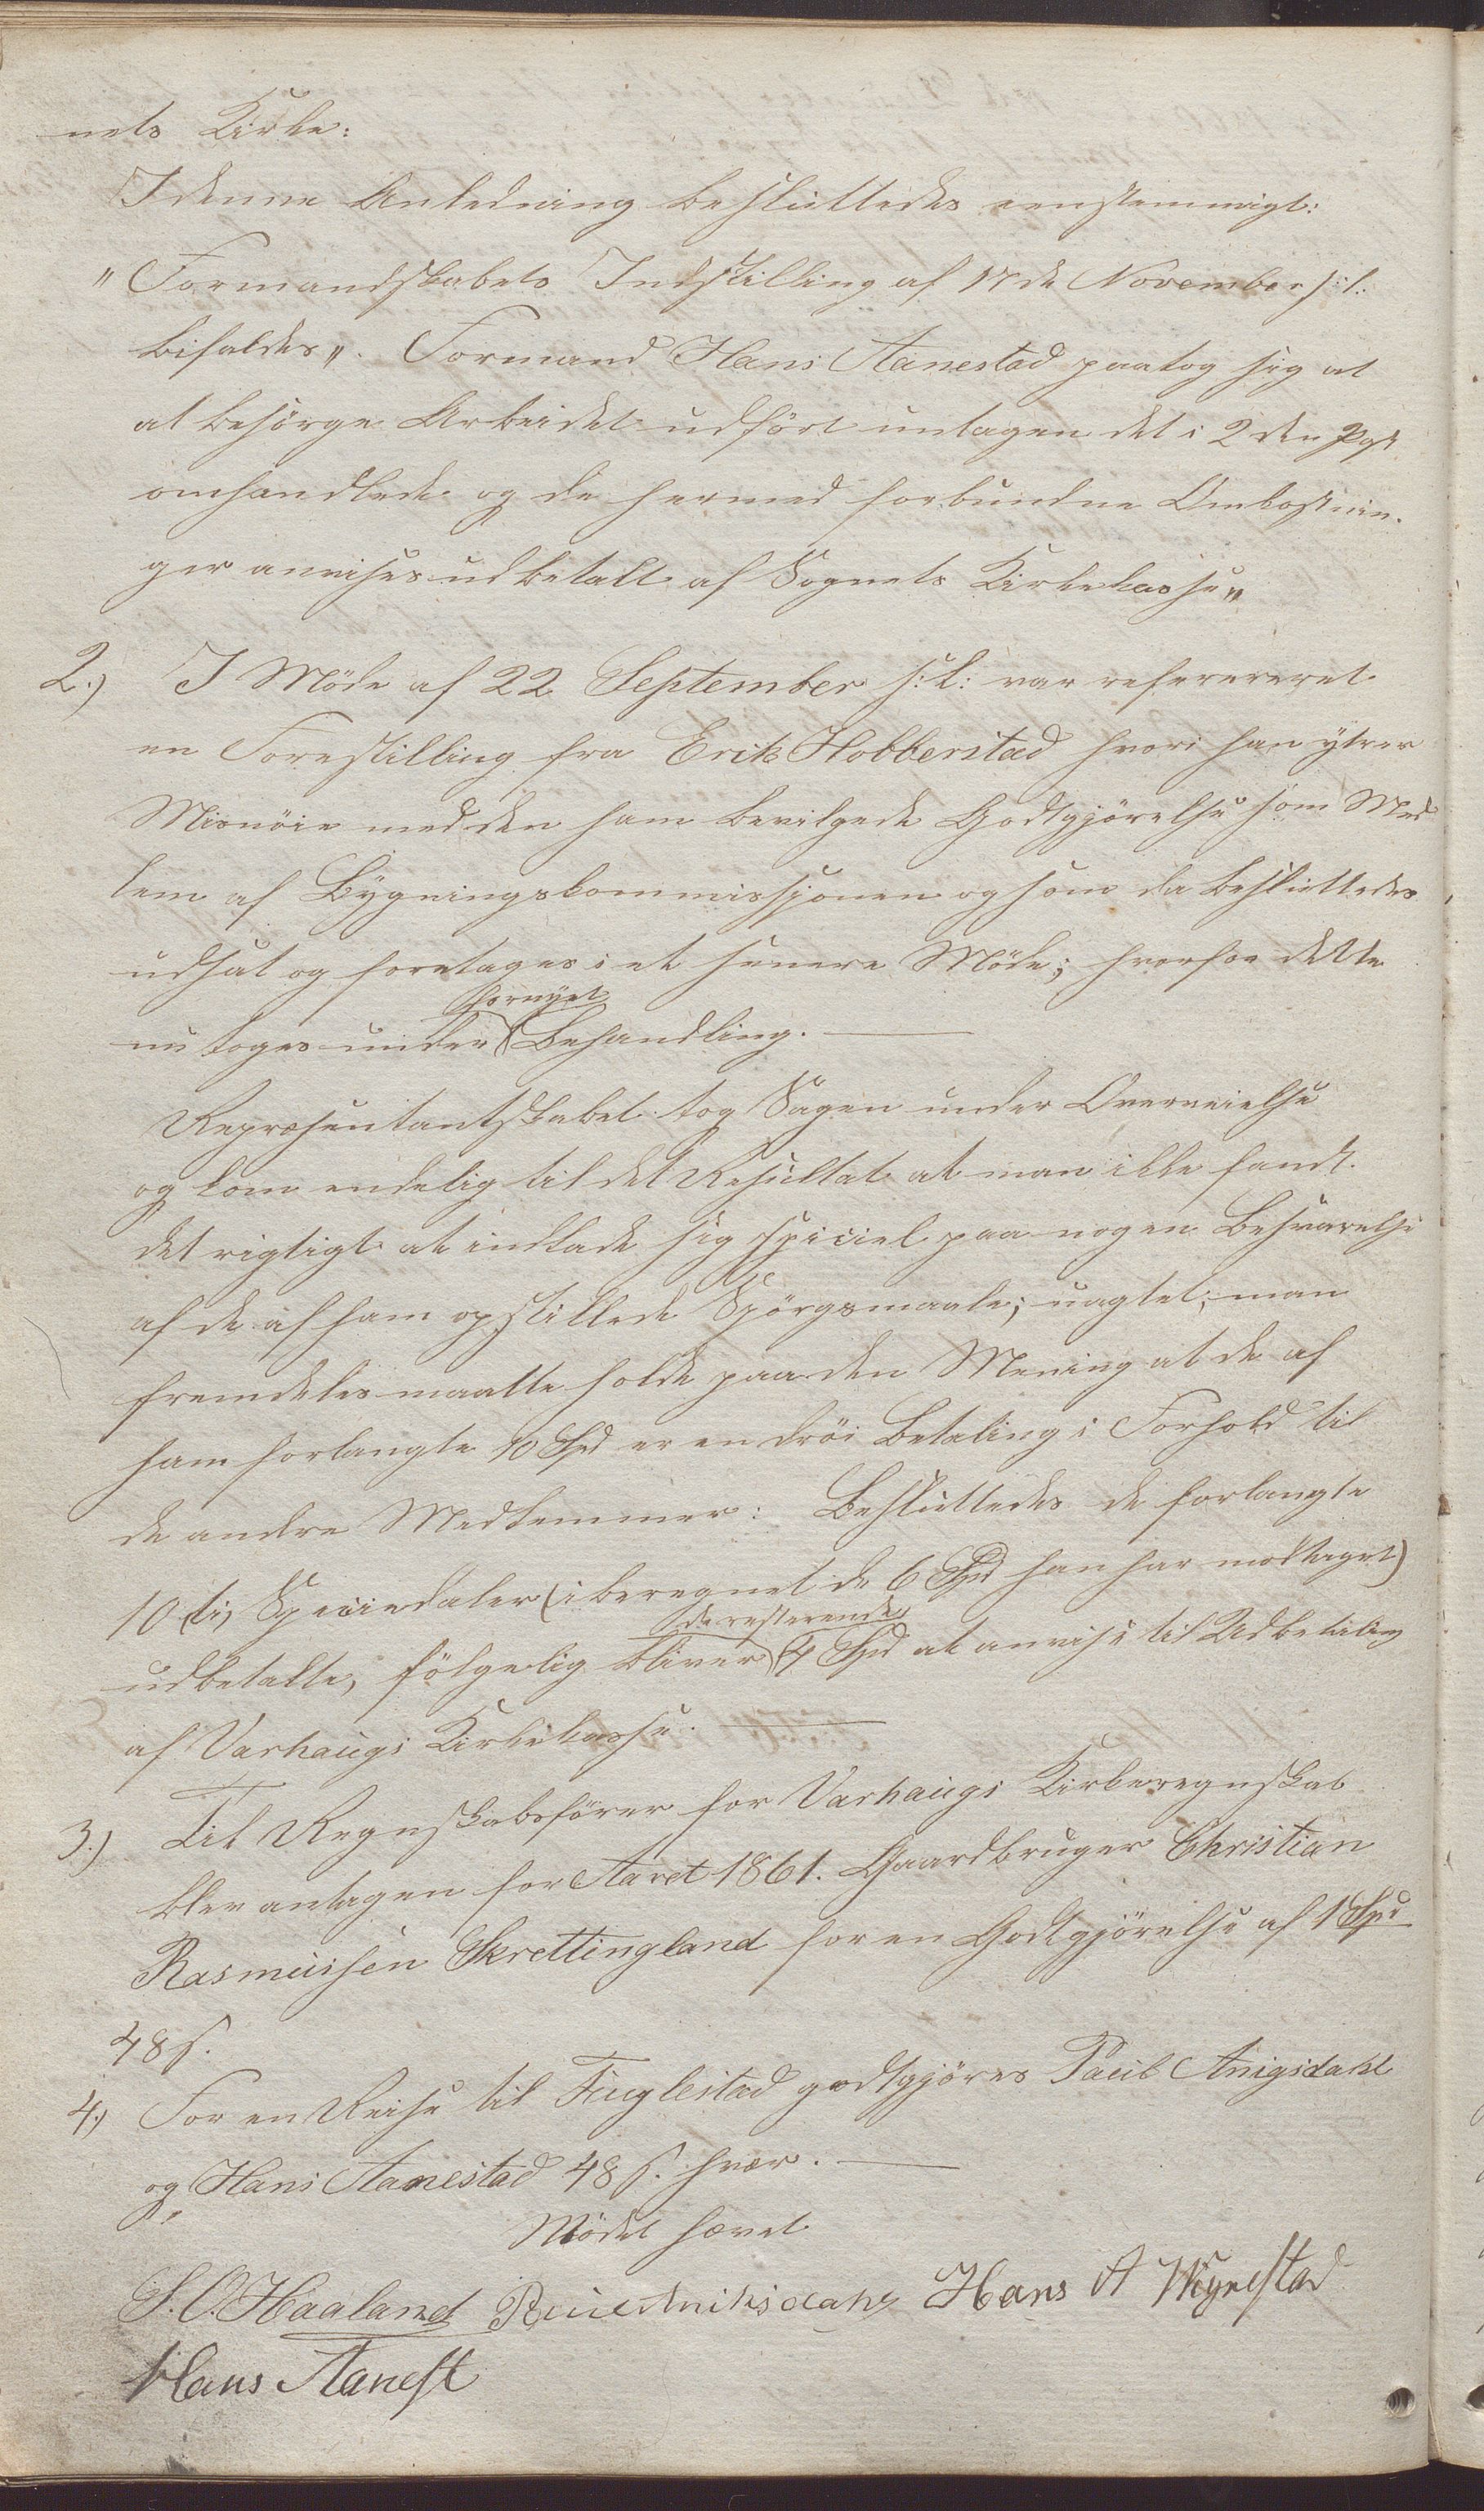 nets Kirke:
I denne Anledning besluttedes eenstemmigt:
"Formandskabets Indstilling af 17de November s: l:
bifaldes". Formand Hans Aanestad paatog sig at
at besørge Arbeidet udført untagen det i 2den Pgt
omhandlede og de hermed forbundne Omkostnin-
ger anvises udbetalt af Sognets Kirkekasse"
2.) I Møde af 22 September s: l: var refereret
en Forestilling fra Erik Hobberstad hvori han ytrer
Misnøie med den ham bevilgede Godtgjørelse som Med
lem af Bygningskommissjonen og som da besluttedes
udsat og foretages i et senere Møde; hvorfor dette
nu toges under fornyet Behandling. —
Repræsentantskabet tog Sagen under Overveielse
og kom endelig til det Resultat at man ikke fandt
det rigtigt at indlade sig speciel paa nogen Besvarelse
af de af ham opstillede Spørgsmaale; uagtet; man
fremdeles maatte holde paa den Mening at de af
ham forlangte 10 Spd er en drøi Betaling i Forhold til
de andre Medlemmer: Besluttedes de forlangte
10 (ti) Speciedaler (iberegnet de 6 Spd han har modtaget)
udbetalte, følgelig bliver de resterende 4 Spd at anvise til Udbetaling
af Varhaugs Kirkekasse. —
3.) Til Regnskabsfører for Varhaugs Kirkeregnskab
blev antagen for Aaret 1861. Gaardbruger Christian
Rasmussen Skrettingland for en Godtgjørelse af 1 Spd
48 s.
4.) For en Reise til Fuglestad godtgjøres Paul Anigsdahl
og Hans Aanestad 48 s. hver. —
Mødet hævet
S. O. Haaland Paul Aniksdahl Hans A
Hans Aanest